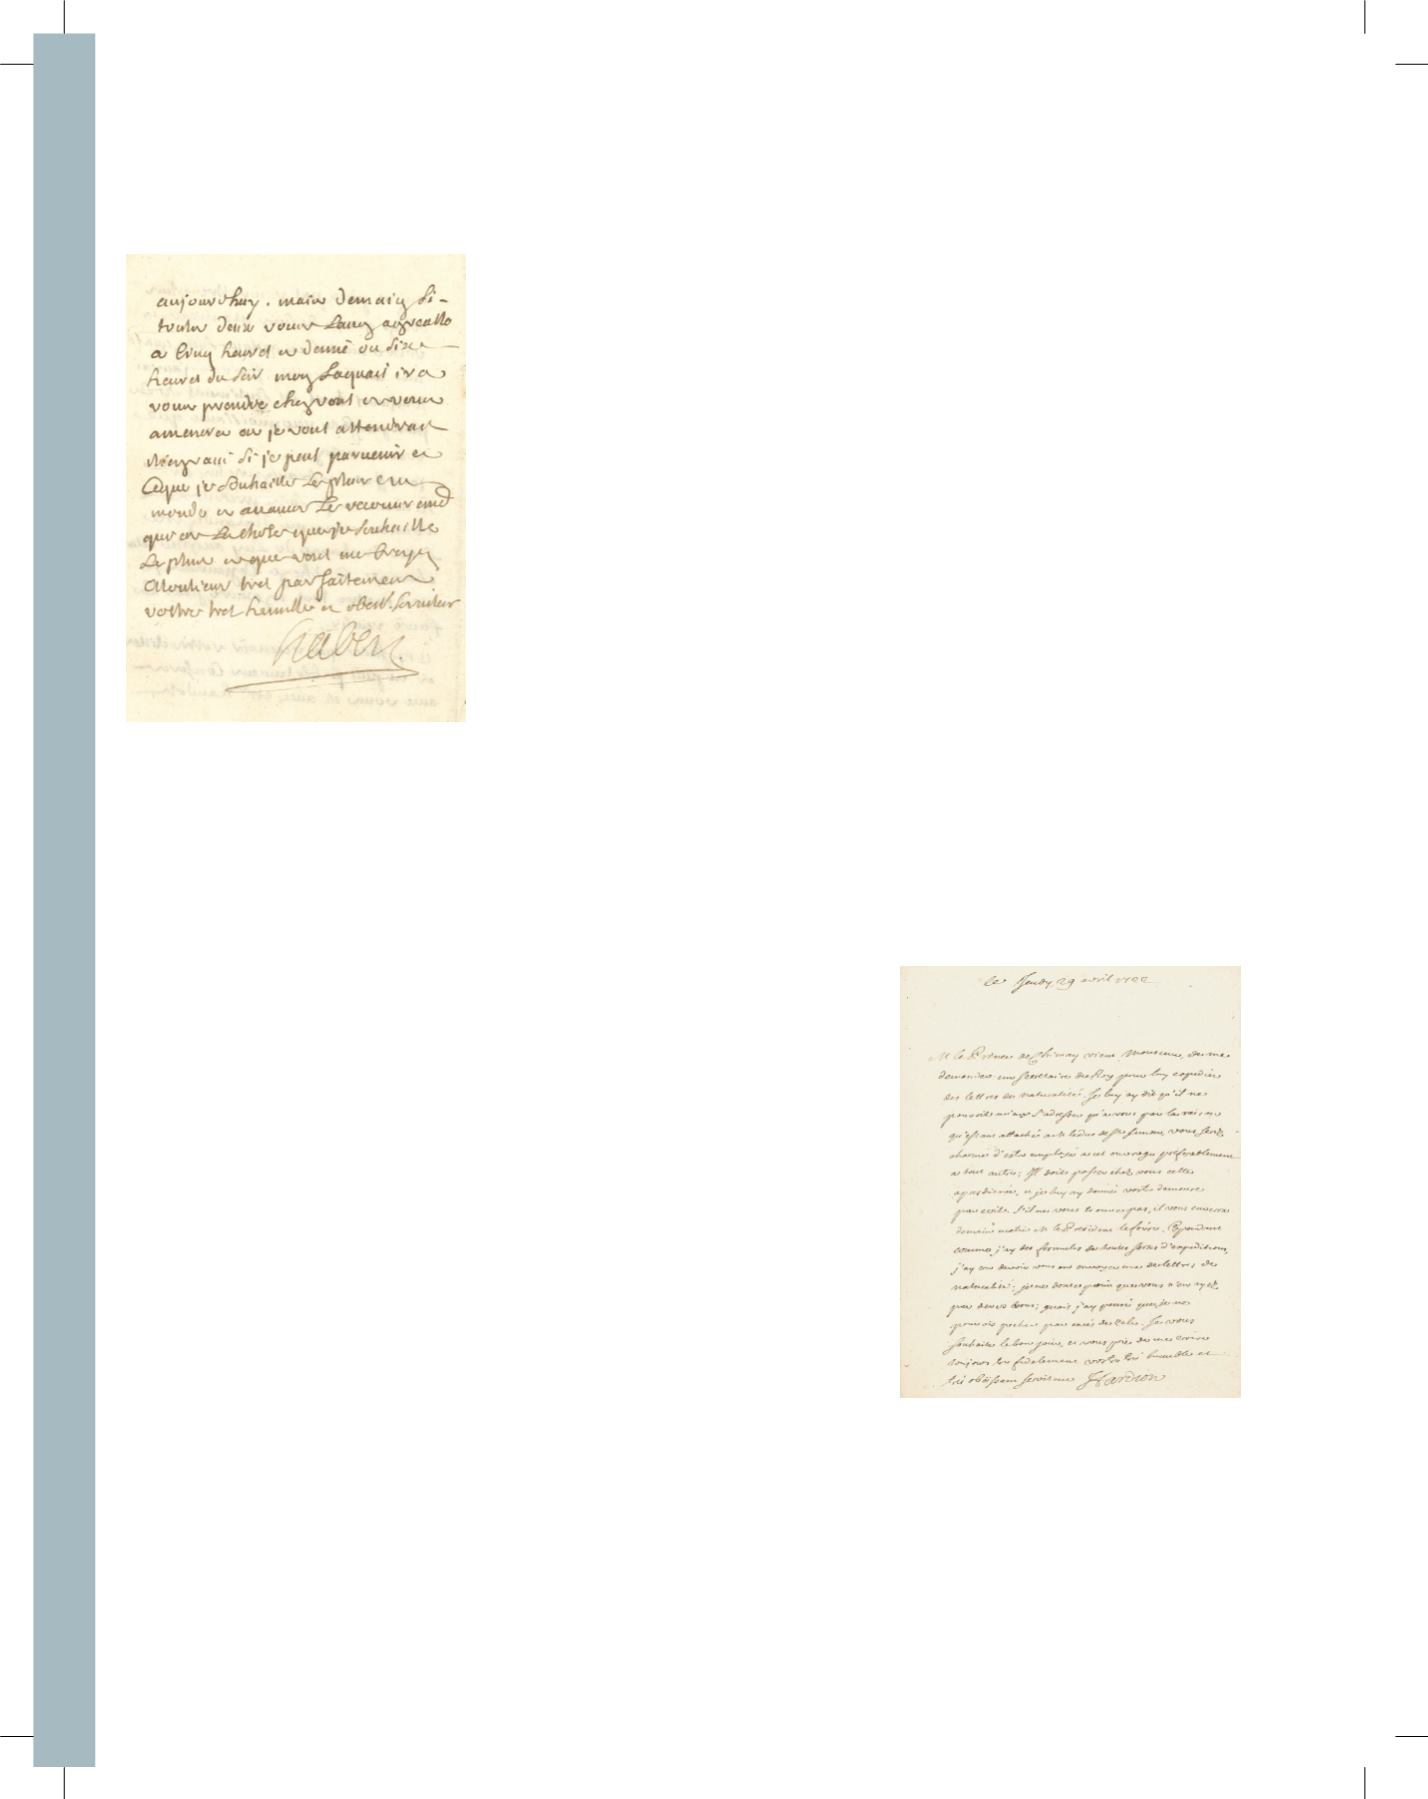 aujourdhuy. mais demain si
vous Lavez agreable
a cinq heures et demie ou six
heures du soir mon Laquais ira
vous prendre chez vous et vous
amenera ou je vous attendrai
si je peus parvenir a
Ceque je souhaitte Le plus au
monde
que je souhaitte
Le plus et que vous me croyez
Monsieur tres parfaitement
vostre tres humble et obeist. serviteur
le Jeudy 29 avril
M le Prince de Chimay vient, Monsieur, de me
demander un secretaire du Roy pour luy expedier
des lettres de naturalité. Je luy ay dit qu'il ne
pouvoit mieux s'adresser qu'a vous par la raison
qu'estant attaché a M le duc de St Simon, vous serez
charmé d'estre employé a cet ouvrage preferablement
a tout autre; Il doit passer chez vous cette
apresdinée, et je luy ay donné vostre demeure
par ecrit. S'il ne vous trouve pas, il vous enverra
demain matin M le President le febvre. Cependant
comme j'ay des formules de toutes sortes d'expeditions,
j'ay cru devoir vous en envoyer une de lettres de
naturalité; je ne doute point que vous n'en ayez
par devers vous; mais j'ay pensé que je ne
pouvois pecher par excés de zele. Je vous
souhaite le bon jour, et vous prie de me croire
toujours tres fidelement vostre tres humble et
tres obeissant serviteur Hardion